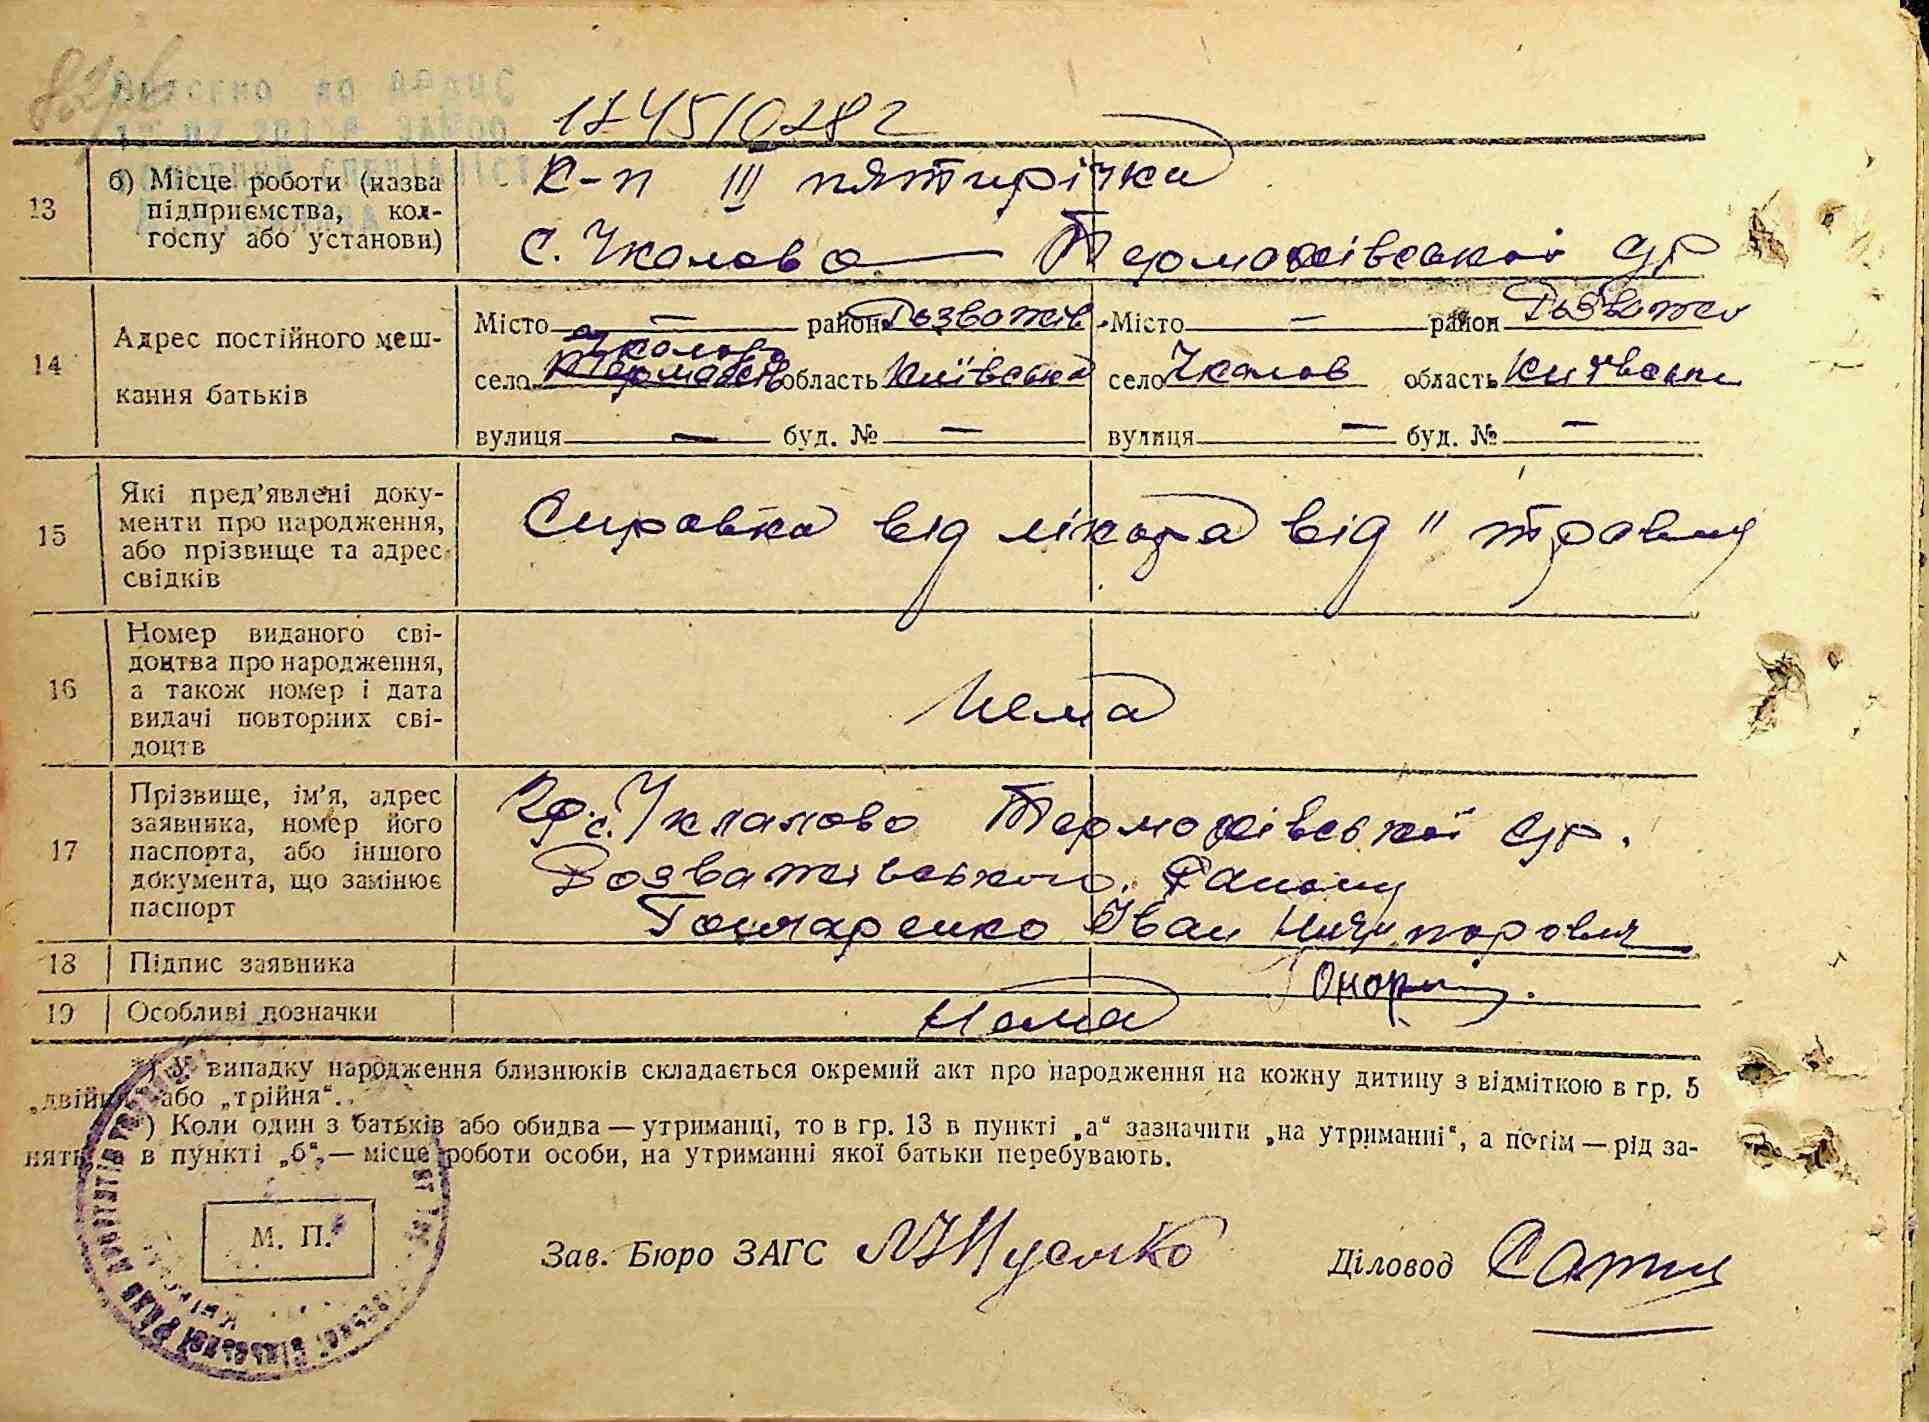 1745/028 г
13 б) Місце роботи (назва К-п III пятирічка
підприємства, кол-
госпу або установи) с. Чкалова — Термахівської с/р
14 Адрес постійного меш-
кання батьків
Місто — район Розважів. Місто — район Розважів
Чкалово
село область Київська село Чкалов область Київська
вулиця — буд. № — вулиця — буд. № —
15 Які пред'явлені доку-
менти про народження, Справка від лікаря від 11 травня
або прізвище та адрес
свідків
16 Номер виданого сві-
доцтва про народження,
а також номер і дата Нема
видачі повторних сві-
доцтв
17 Прізвище, ім'я, адрес
заявника, номер його с. Чкалово Термахівської с/р.
паспорта, або іншого
документа, що замінює Розважівського Району
паспорт Гончаренко Іван Ничипорович
18 Підпис заявника
19 Особливі позначки Нема
*) У випадку народження близнюків складається окремий акт про народження на кожну дитину з відміткою в гр. 5
„двійня" або „трійня".
*) Коли один з батьків або обидва — утриманці, то в гр. 13 в пункті „а" зазначити „на утриманні", а потім — рід за-
няття, в пункті „б", — місце роботи особи, на утриманні якої батьки перебувають.
М. П.
Зав. Бюро ЗАГС Діловод